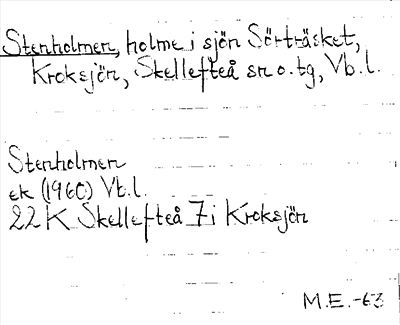 Stenholmen, holme i sjön Sörträsket,
Kroksjön, Skellefteå sn o. tg, Vb. l.
Stenholmen
ek (1960) Vt. l.
22 K Skellefteå 7 i Kroksjön
M.E.-63